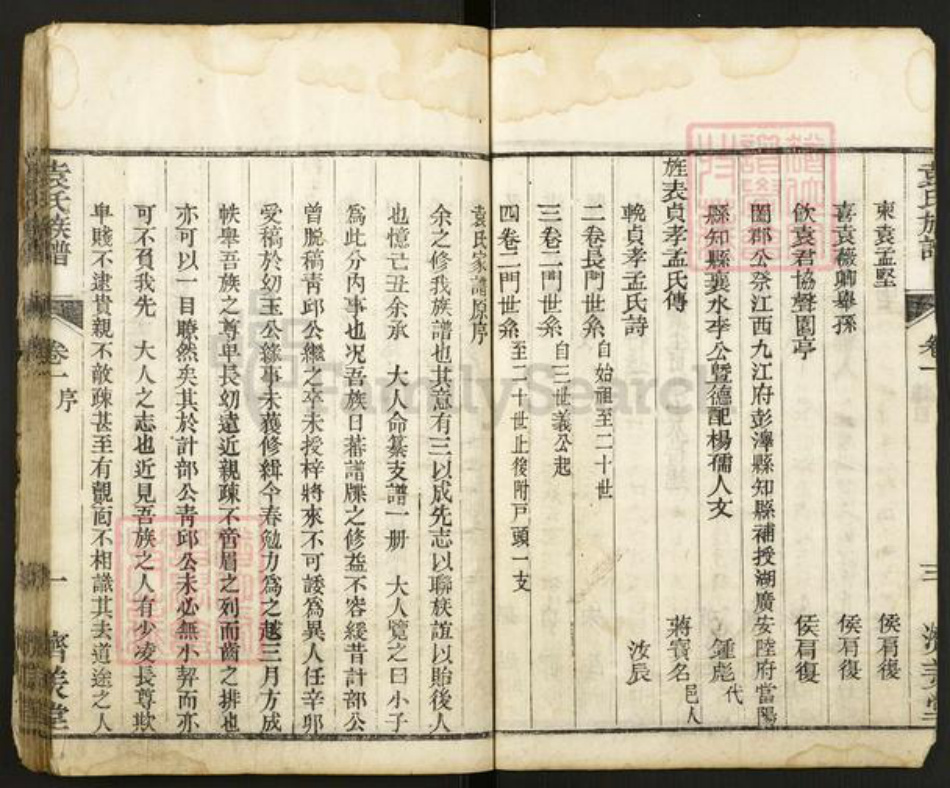 袁氏族譜
卷一
三
東袁孟堅
侯肩復
喜袁薇卿舉孫
侯肩復
飲袁君協聲園亭
侯肩復
閩郡公祭江西九江府彭澤縣知縣補授湖廣安陸府當陽
縣知縣襄水李公暨德配楊孺人文
鍾彪代
旌表貞孝孟氏傳
蔣寶名邑人
輓貞孝孟氏詩
汝辰
二卷長門世系自始祖至二十世
三卷二門世系自三世義公起
四卷二門世系至二十世止後附戸頭一支
袁氏家譜原序
余之修我族譜也其意有三以成先志以聯族誼以貽後人
也憶己丑余承 大人命纂支譜一册 大人覽之曰小子
爲此分内事也况吾族日蕃譜牒之修益不容緩昔計部公
曾脫稿靑邱公繼之卒未授梓將來不可諉爲異人任辛卯
受稿於幼玉公緣事未獲修緝今春勉力爲之越三月方成
帙舉吾族之尊卑長幼遠近親疎不啻眉之列而齒之排也
亦可以一目瞭然矣其於計部公靑邱公未必無小契而亦
可不負我先 大人之志也近見吾族之人有少凌長尊欺
卑賤不逮貴親不敵疎甚至有覿面不相識其去道途之人
袁氏族譜
卷一 序
一
濟美堂
FamilySearch